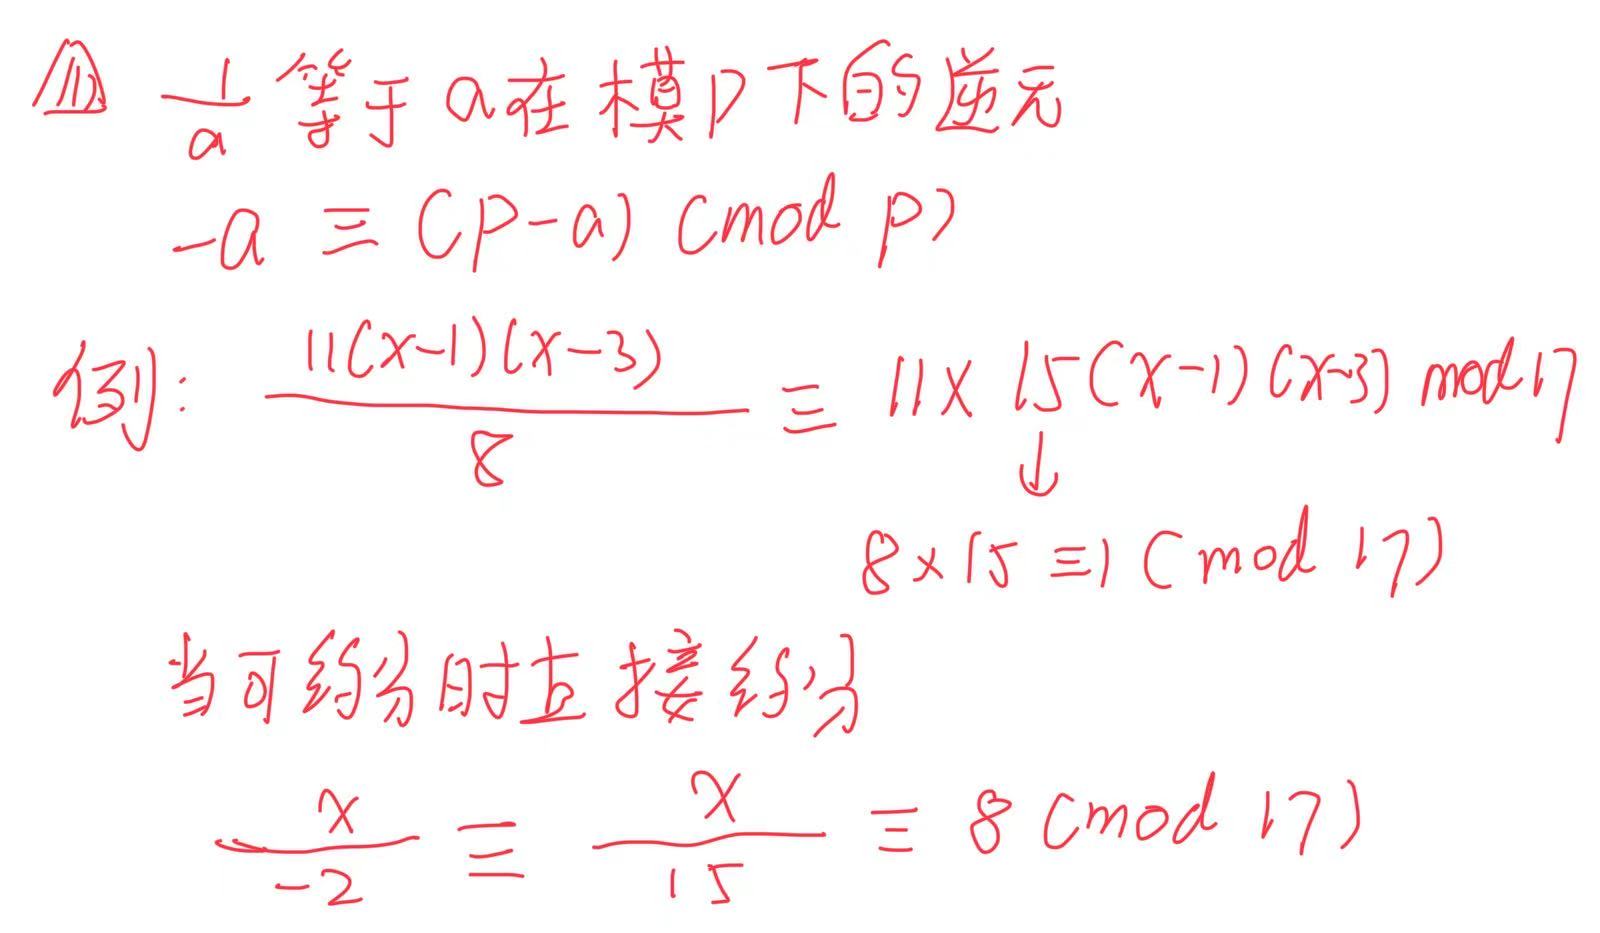 (11) 1/a 等于 a在模p下的逆元
-a ≡ (p-a) (mod p)
例: 11(x-1)(x-3)/8 ≡ 11× 15(x-1)(x-3) mod 17
↓
8×15 ≡1 (mod 17)
当可约分时直接约分
x/-2 ≡ x/15 ≡ 8 (mod 17)